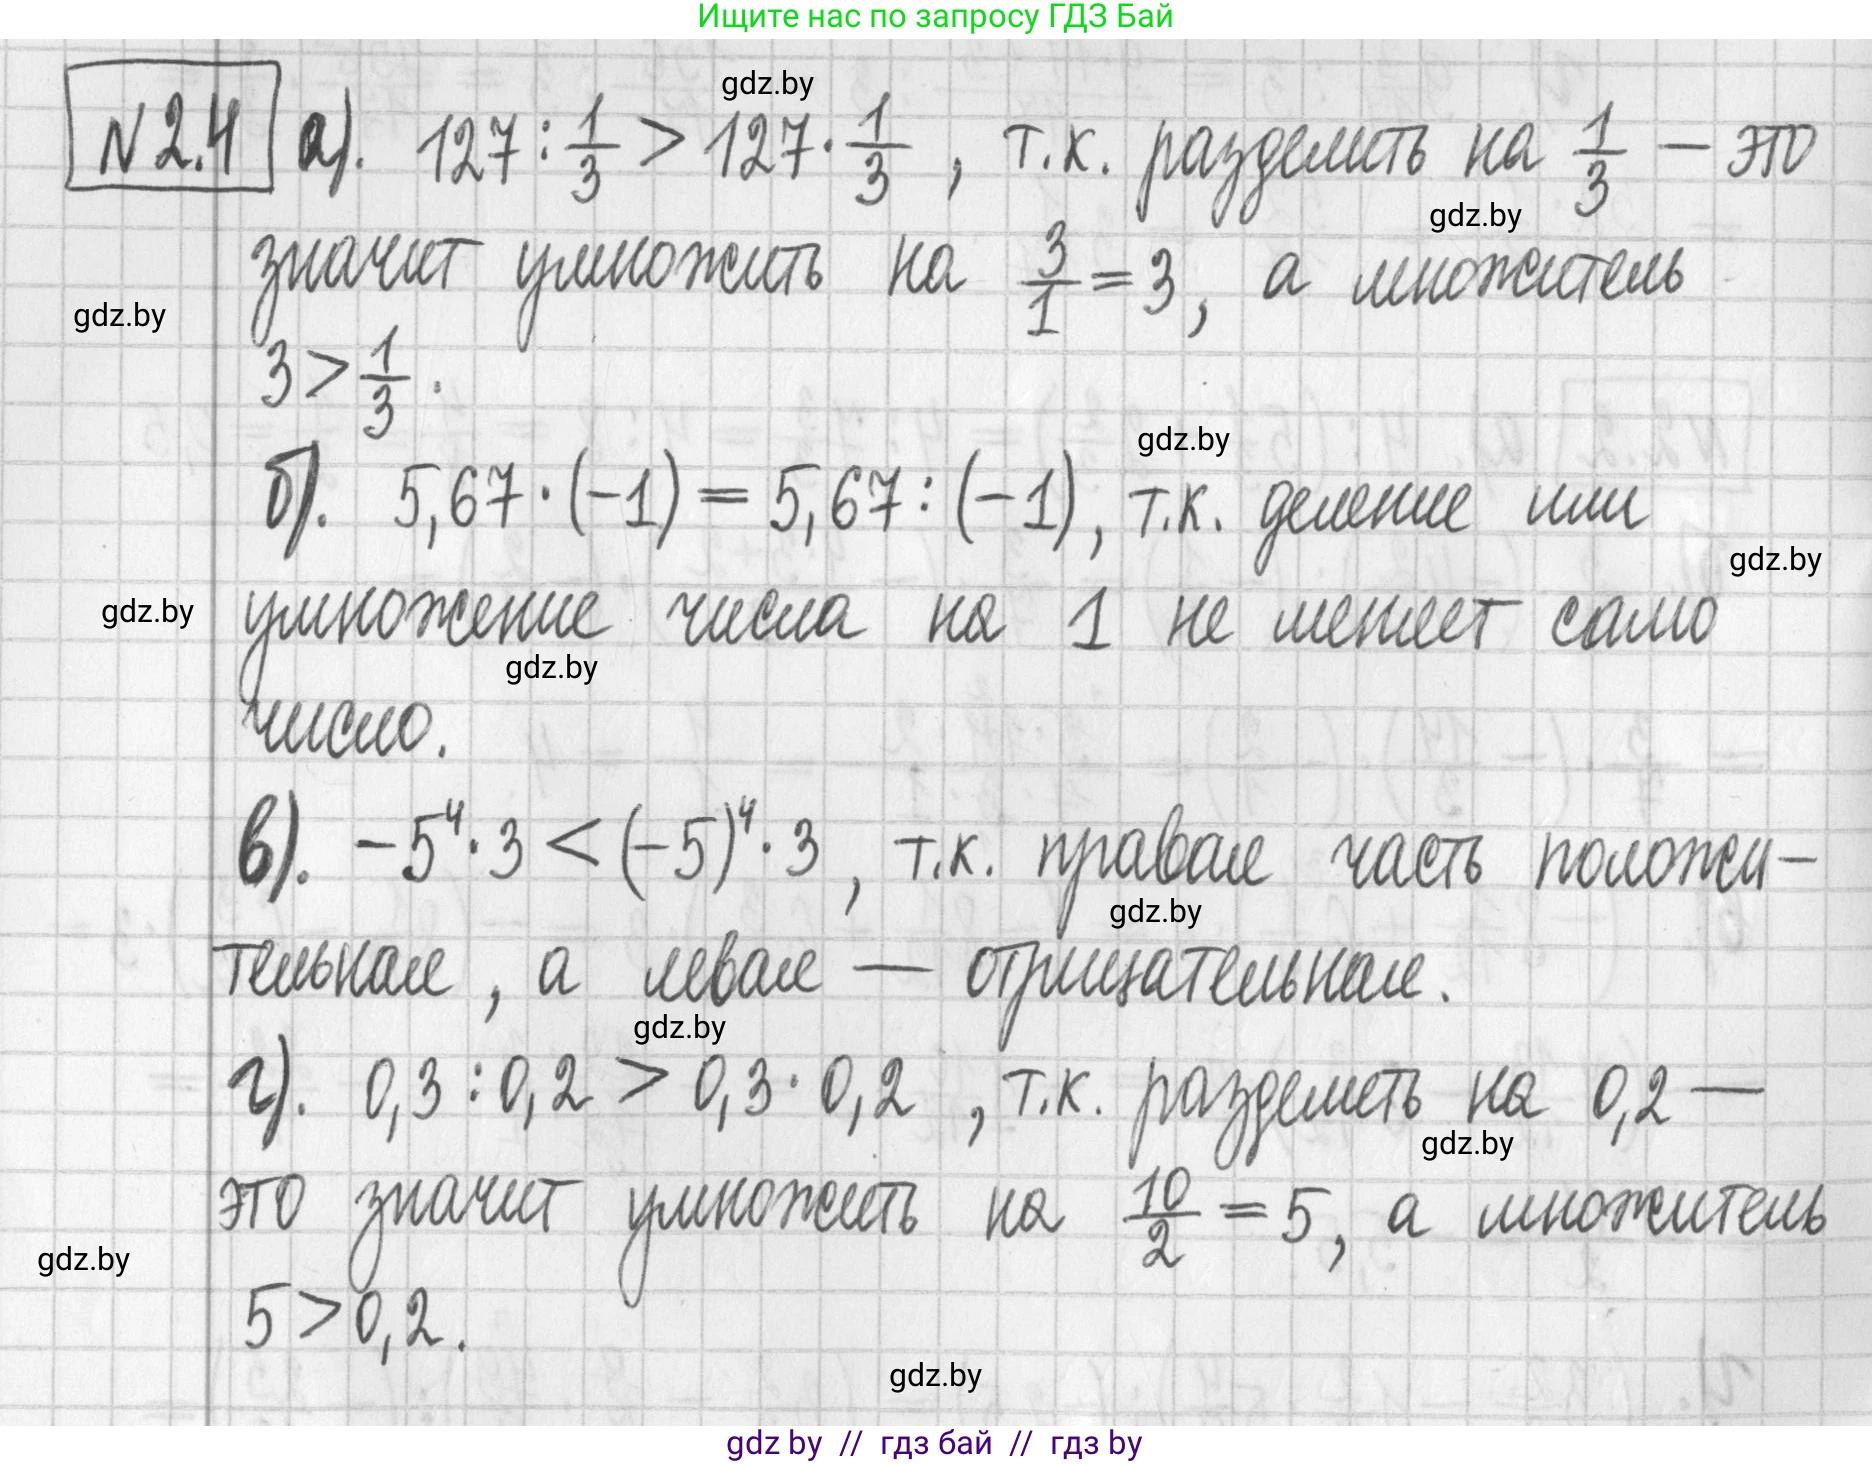 Ищите нас по запросу ГДЗ Бай
gdz.by
N 2.4 а). 127 : 1/3 > 127 · 1/3 , т.к. разделить на 1/3 — это
gdz.by
значит умножить на 3/1 = 3, а множитель
gdz.by
3 > 1/3 .
gdz.by
б). 5,67 · (−1) = 5,67 : (−1), т.к. деление или
gdz.by
gdz.by
умножение числа на 1 не меняет само
gdz.by
число.
в). −5⁴ · 3 < (−5)⁴ · 3 , т.к. правая часть положи-
gdz.by
тельная, а левая — отрицательная.
gdz.by
г). 0,3 : 0,2 > 0,3 · 0,2 , т.к. разделить на 0,2 —
gdz.by
это значит умножить на 10/2 = 5, а множитель
gdz.by
5 > 0,2.
gdz.by
gdz by // гдз бай // гдз by